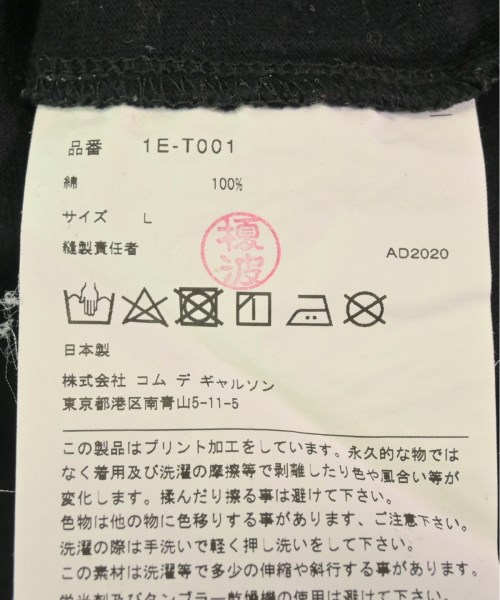 品番 1E-T001
綿 100%
サイズ L
縫製責任者
榎波
AD2020
日本製
株式会社 コム デ ギャルソン
東京都港区南青山5-11-5
この製品はプリント加工をしています。永久的な物では
なく着用及び洗濯の摩擦等で剥離したり色や風合い等が
変化します。揉んだり擦る事は避けて下さい。
色物は他の物に色移りする事があります、ご注意下さい。
洗濯の際は手洗いで軽く押し洗いをして下さい。
この素材は洗濯等で多少の伸縮や斜行する事があります。
蛍光剤及びタンブラー乾燥機の使用は避けて下さい。